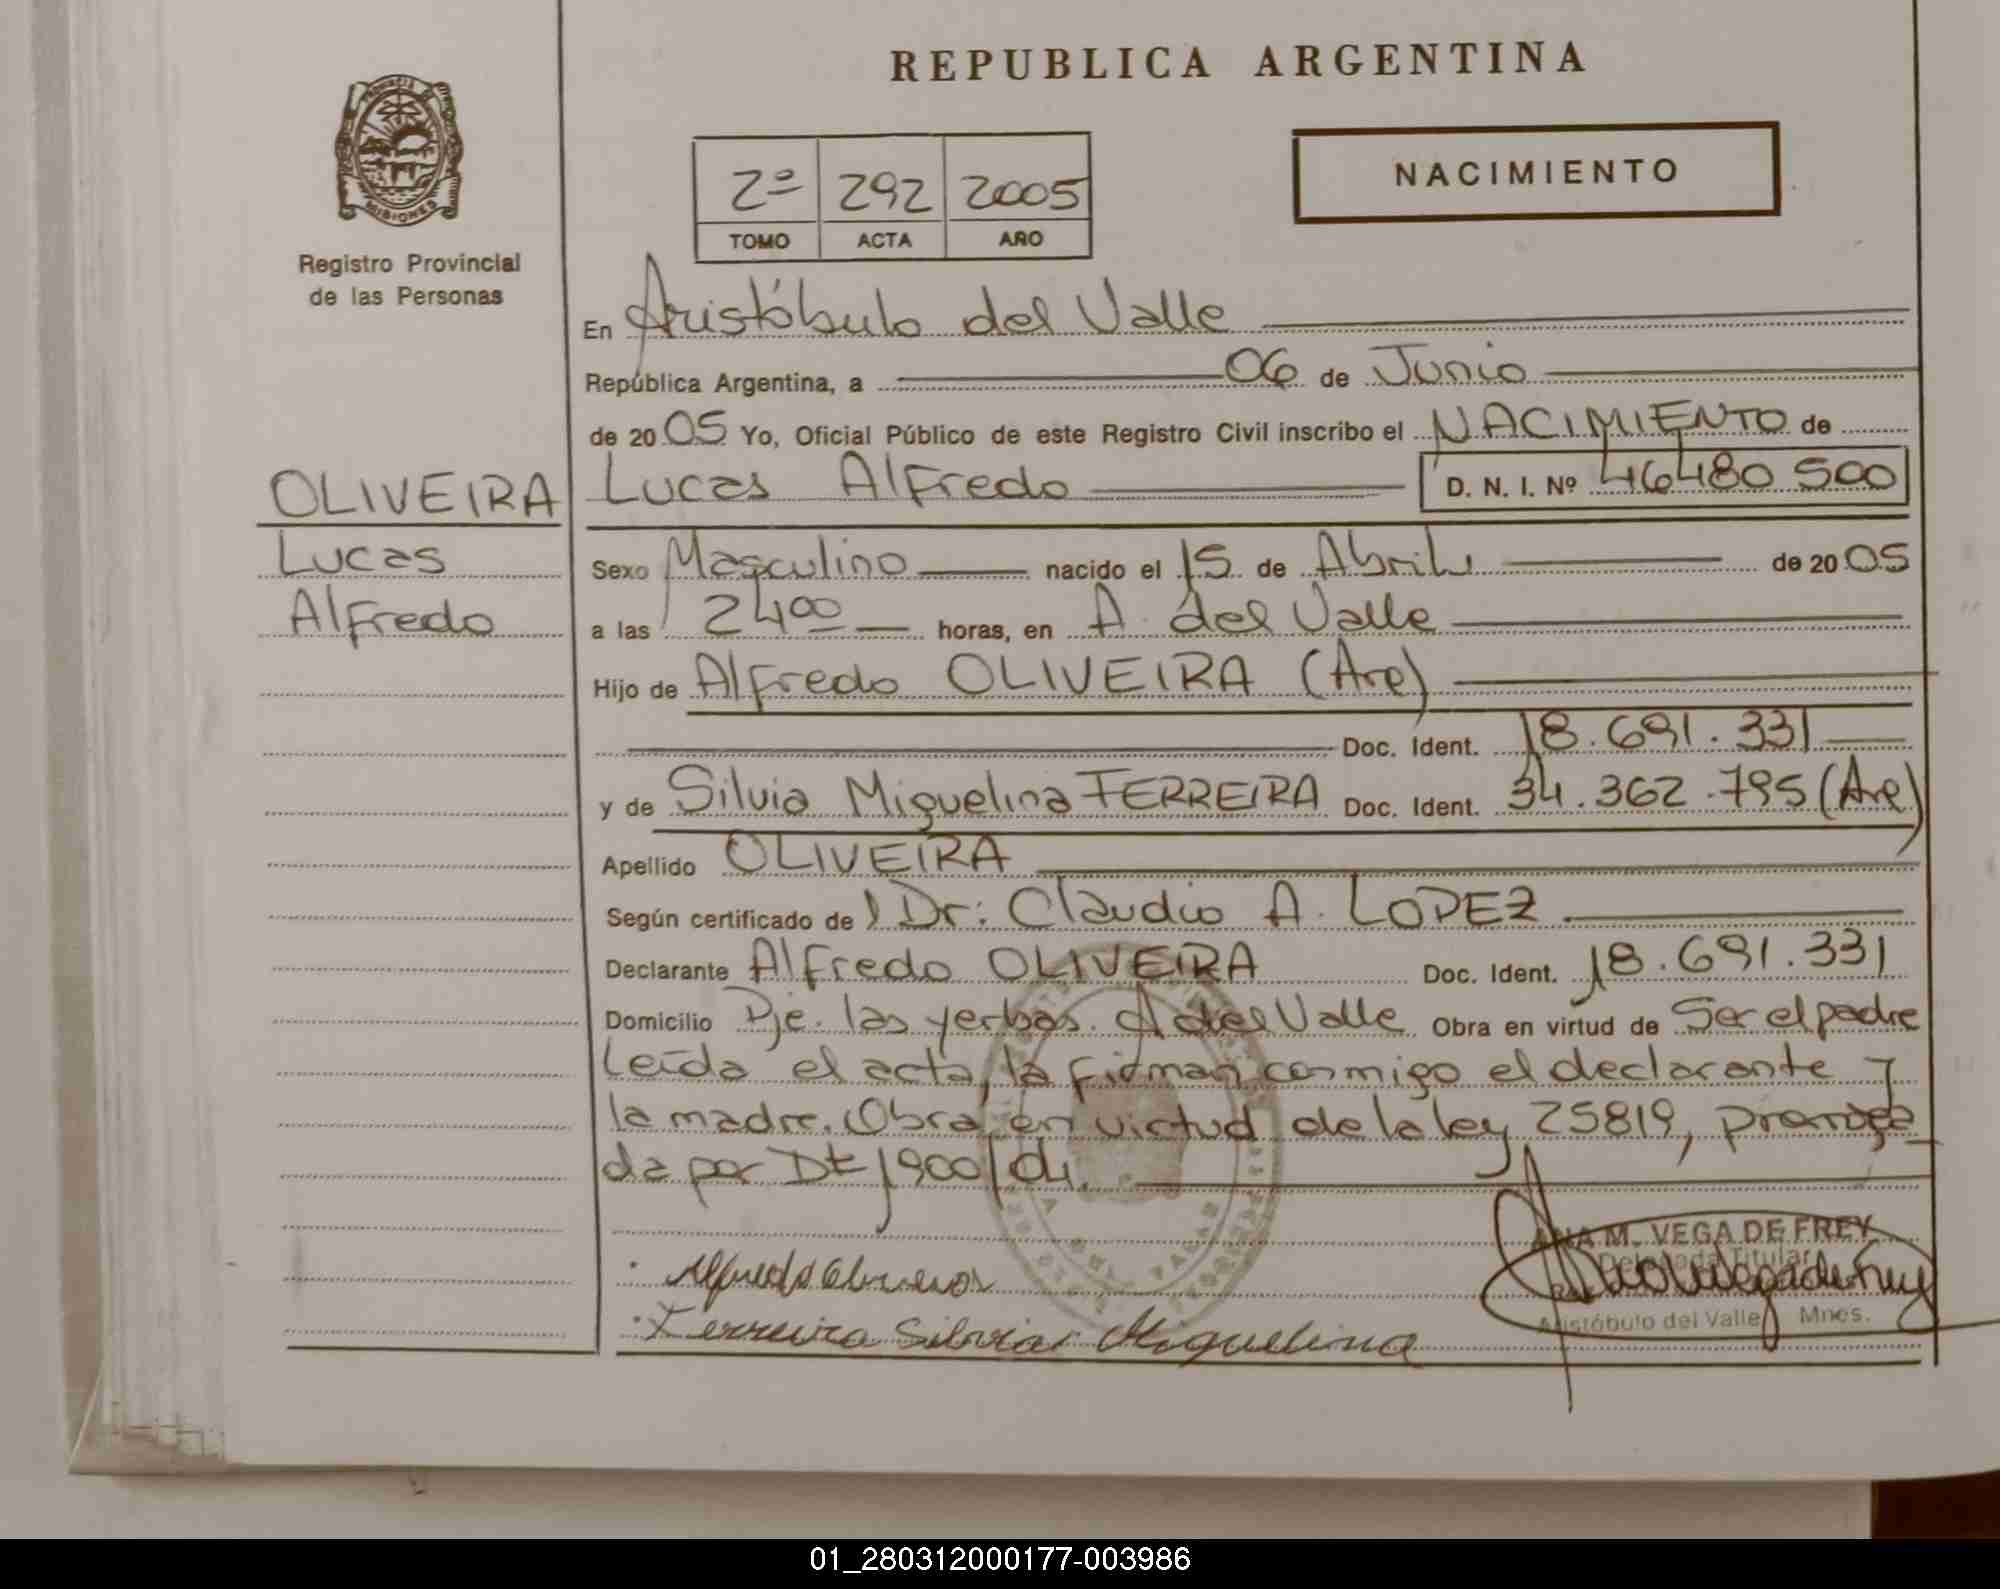 REPUBLICA ARGENTINA
PROVINCIA DE MISIONES
Registro Provincial
de las Personas
2º 292 2005
TOMO ACTA AÑO
NACIMIENTO
En Aristóbulo del Valle
República Argentina, a 06 de Junio
de 2005 Yo, Oficial Público de este Registro Civil inscribo el NACIMIENTO de
OLIVEIRA
Lucas
Alfredo
Lucas Alfredo D. N. I. Nº 46480500
Sexo Masculino nacido el 15 de Abril de 2005
a las 24 00 horas, en A. del Valle
Hijo de Alfredo OLIVEIRA (Arg)
Doc. Ident. 18.691.331
y de Silvia Miguelina FERREIRA Doc. Ident. 34.362.795 (Arg)
Apellido OLIVEIRA
Según certificado de Dr: Claudio A. LOPEZ
Declarante Alfredo OLIVEIRA Doc. Ident. 18.691.331
Domicilio Pje. las yerbas. A del Valle Obra en virtud de Ser el padre
Leída el acta, la firman conmigo el declarante y
la madre. Obra en virtud de la ley 25819, prorroga
da por Dt 1900/04.
ANA M. VEGA DE FREY
Delegada Titular
Aristóbulo del Valle Mnes.
Ferreira Silvia Miguelina
01_280312000177-003986